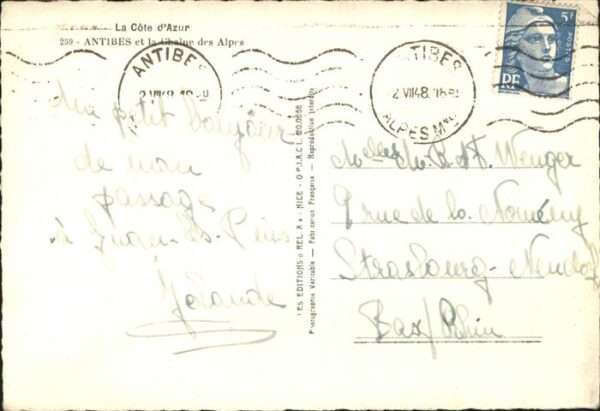 La Côte d'Azur
259 - ANTIBES et la Chaîne des Alpes
ANTIBES
2 VII 48
ANTIBES
2 VII 48
ALPES Mmes
5F
RF
un petit bonjour
de mon
passage
à Juan-les-Pins
Yolande
LES EDITIONS « REL
NICE
Photographie Véritable — Fabrication Française — Reproduction Interdite
M. Wenger
9 rue de la
Strasbourg - Neudorf
Bas/Rhin